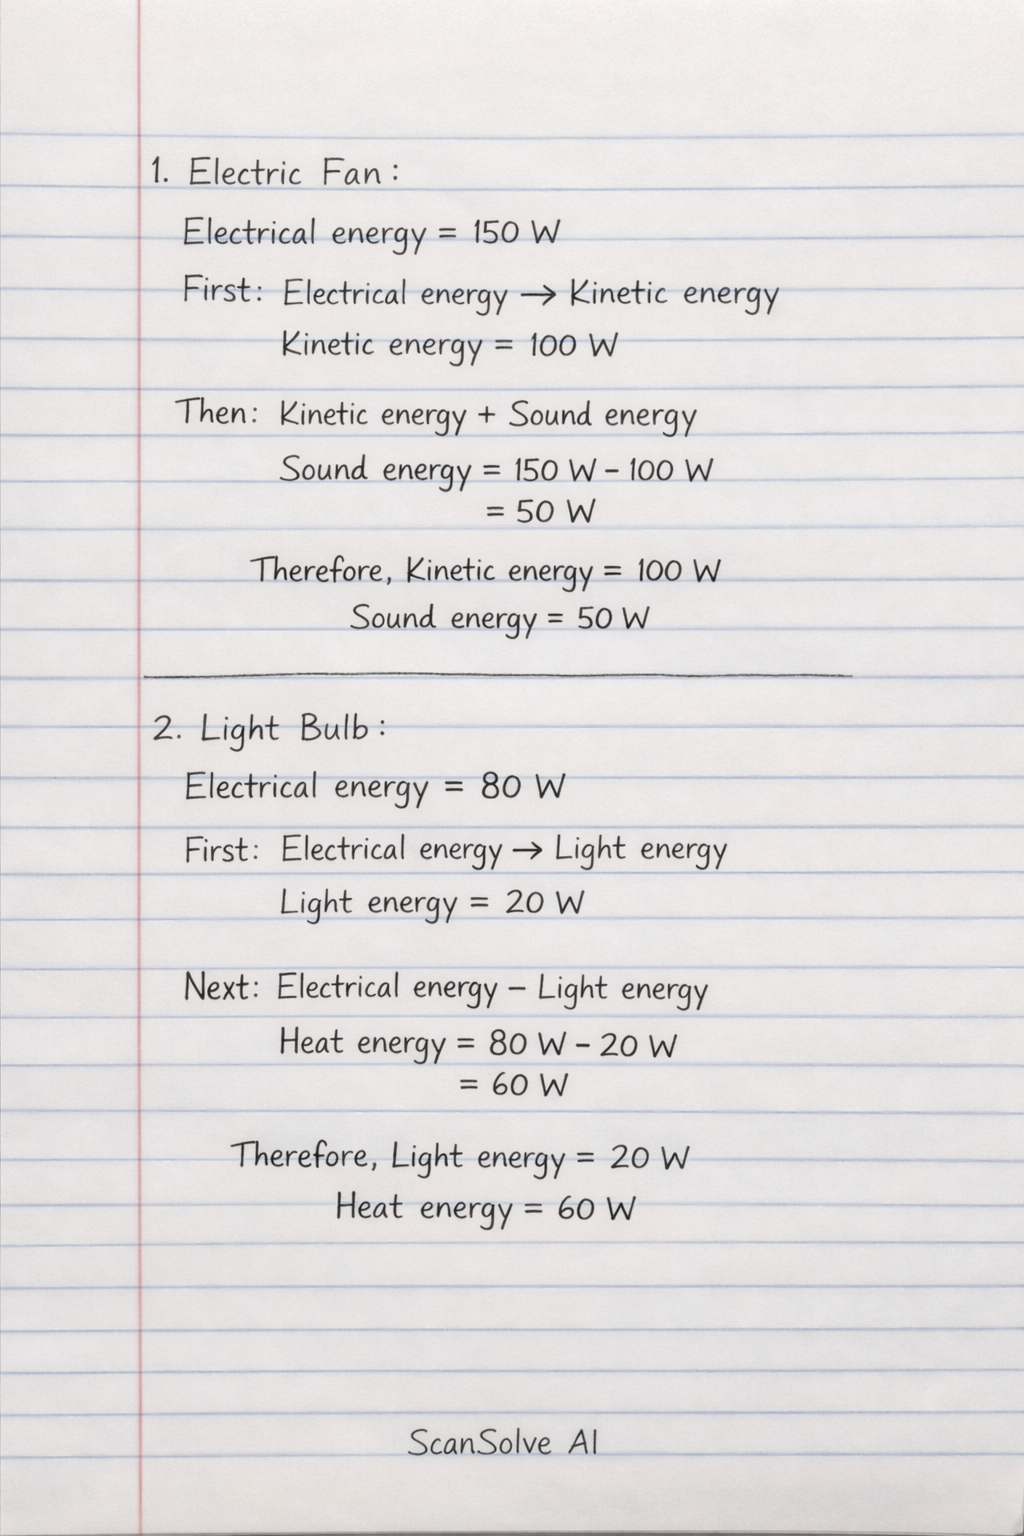 1. Electric Fan:
Electrical energy = 150 W
First: Electrical energy → Kinetic energy
Kinetic energy = 100 W
Then: Kinetic energy + Sound energy
Sound energy = 150 W - 100 W
= 50 W
Therefore, Kinetic energy = 100 W
Sound energy = 50 W
2. Light Bulb:
Electrical energy = 80 W
First: Electrical energy → Light energy
Light energy = 20 W
Next: Electrical energy - Light energy
Heat energy = 80 W - 20 W
= 60 W
Therefore, Light energy = 20 W
Heat energy = 60 W
ScanSolve AI